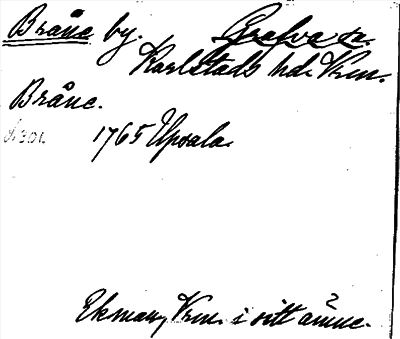 Bråne by. Grava sn.
Karlstads hd. Vrm.
Bråne.
s. 301. 1765 Upsala.
Ekman, Vrm. i sitt ämne.